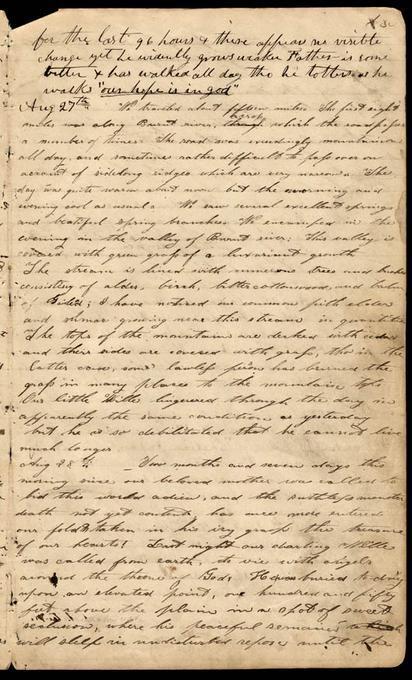 for the last 96 hours & there appears no visible
change yet he evidently grows weaker Father is some
better & has walked all day tho he totters as he
walks "our hope is in god"
Aug 27th We traveled about fifteen miles. The first eight
miles was along Burnt river, across which the road passes
a number of times. The road was exceedingly mountainous
all day, and sometimes rather difficult to pass over on
account of sideling ridges which are very narrow. The
day was quite warm about noon but the morning and
evening cool as usual. We saw several excellent springs
and beatiful spring branches. We encamped in the
evening in the valley of Burnt river; This valley is
covered with green grass of a luxuriant growth
The stream is lined with numerous trees and bushes
consisting of alder, birch, bitter cottonwood, and balm
of Gilead; I have noticed our common pith elder
and shumac growing near this stream in quantities
The tops of the mountains are decked with cedar
and their sides are covered with grass, tho in the
latter case, some lawless person has burned the
grass in many places to the mountains tops
Our little Willie lingered through the day in
apparently the same condition as yesterday
but he is so debilitated that he cannot live
much longer
Aug 28th Two months and seven days this
morning since our beloved mother was called to
bid this world adieu, and the ruthless monster
death not yet content, has once more entered
our fold & taken in his icy grasp the treasure
of our hearts! Last night our darling Willie
was called from earth, to vie with angels
around the throne of God. He was buried to-day
upon an elevated point, one hundred and fifty
feet above the plain in a spot of sweet
seclusion, where his peaceful remains
will sleep in undisturbed repose until the